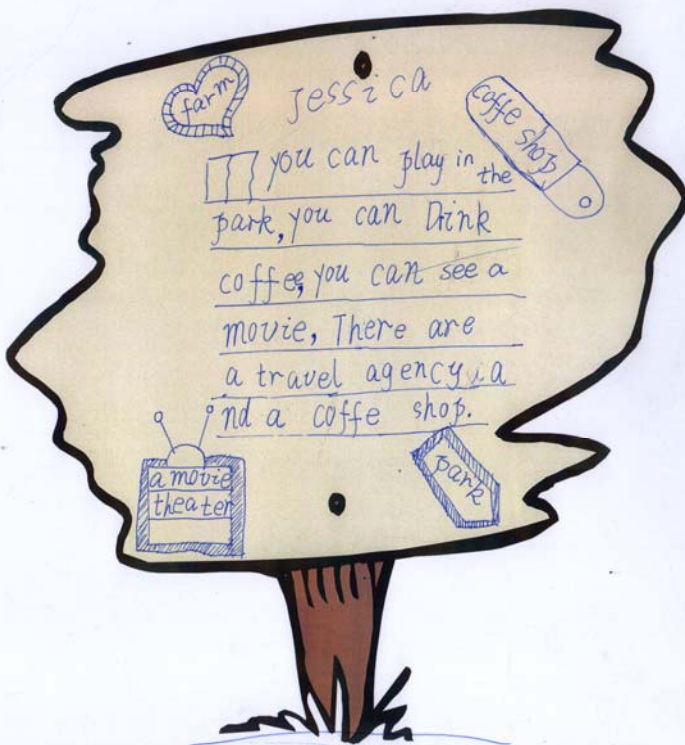 farm
Jessica
coffe shop
you can play in the
park, you can Drink
coffee, you can see a
movie, There are
a travel agency. a
nd a coffe shop.
a movie
theater
park